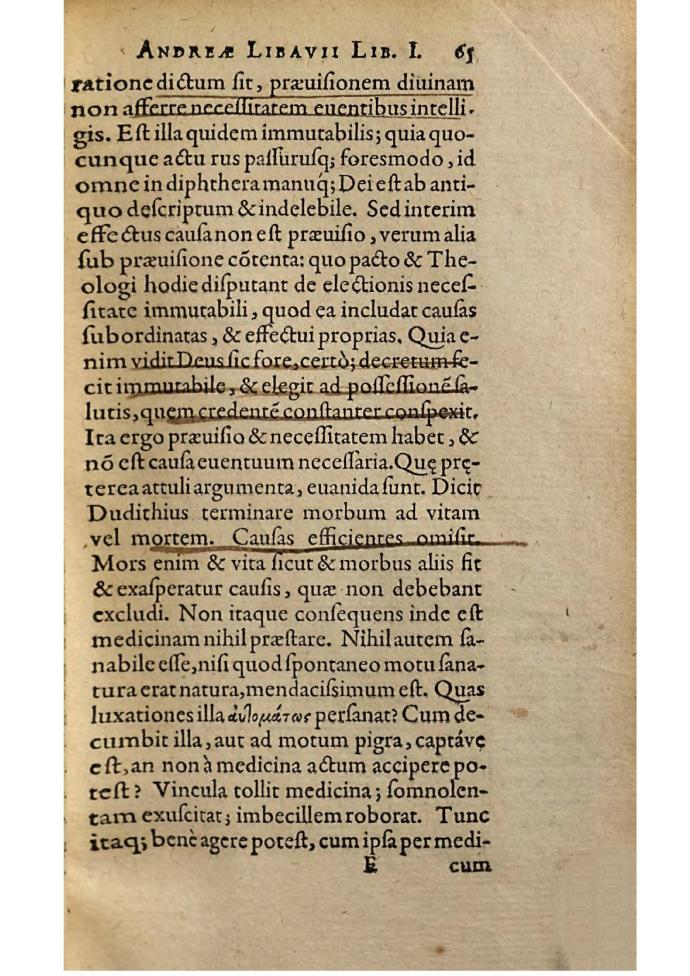 ANDREÆ LIBAVII LIB. I. 65
ratione dictum ſit, præuiſionem diuinam
non afferre neceſſitatem euentibus intelli-
gis. Eſt illa quidem immutabilis; quia quo-
cunque actu rus paſſurusq; foresmodo, id
omne in diphthera manuq́; Dei eſt ab anti-
quo deſcriptum & indelebile. Sed interim
effectus cauſa non eſt præuiſio, verum alia
ſub præuiſione cõtenta: quo pacto & The-
ologi hodie diſputant de electionis neceſ-
ſitate immutabili, quod ea includat cauſas
ſubordinatas, & effectui proprias. Quia e-
nim vidit Deus ſic fore, certò; decretum fe-
cit immutabile, & elegit ad poſſeſſionẽ ſa-
lutis, quem credentẽ conſtanter conſpexit.
Ita ergo præuiſio & neceſſitatem habet, &
nõ eſt cauſa euentuum neceſſaria. Quę prę-
terea attuli argumenta, euanida ſunt. Dicit
Dudithius terminare morbum ad vitam
vel mortem. Cauſas efficientes omiſit.
Mors enim & vita ſicut & morbus aliis fit
& exaſperatur cauſis, quæ non debebant
excludi. Non itaque conſequens inde eſt
medicinam nihil præſtare. Nihil autem ſa-
nabile eſſe, niſi quod ſpontaneo motu ſana-
tura erat natura, mendaciſsimum eſt. Quas
luxationes illa αὐτομάτως perſanat? Cum de-
cumbit illa, aut ad motum pigra, captáve
eſt, an non à medicina actum accipere po-
teſt? Vincula tollit medicina; ſomnolen-
tam exuſcitat; imbecillem roborat. Tunc
itaq; benè agere poteſt, cum ipſa per medi-
E cum